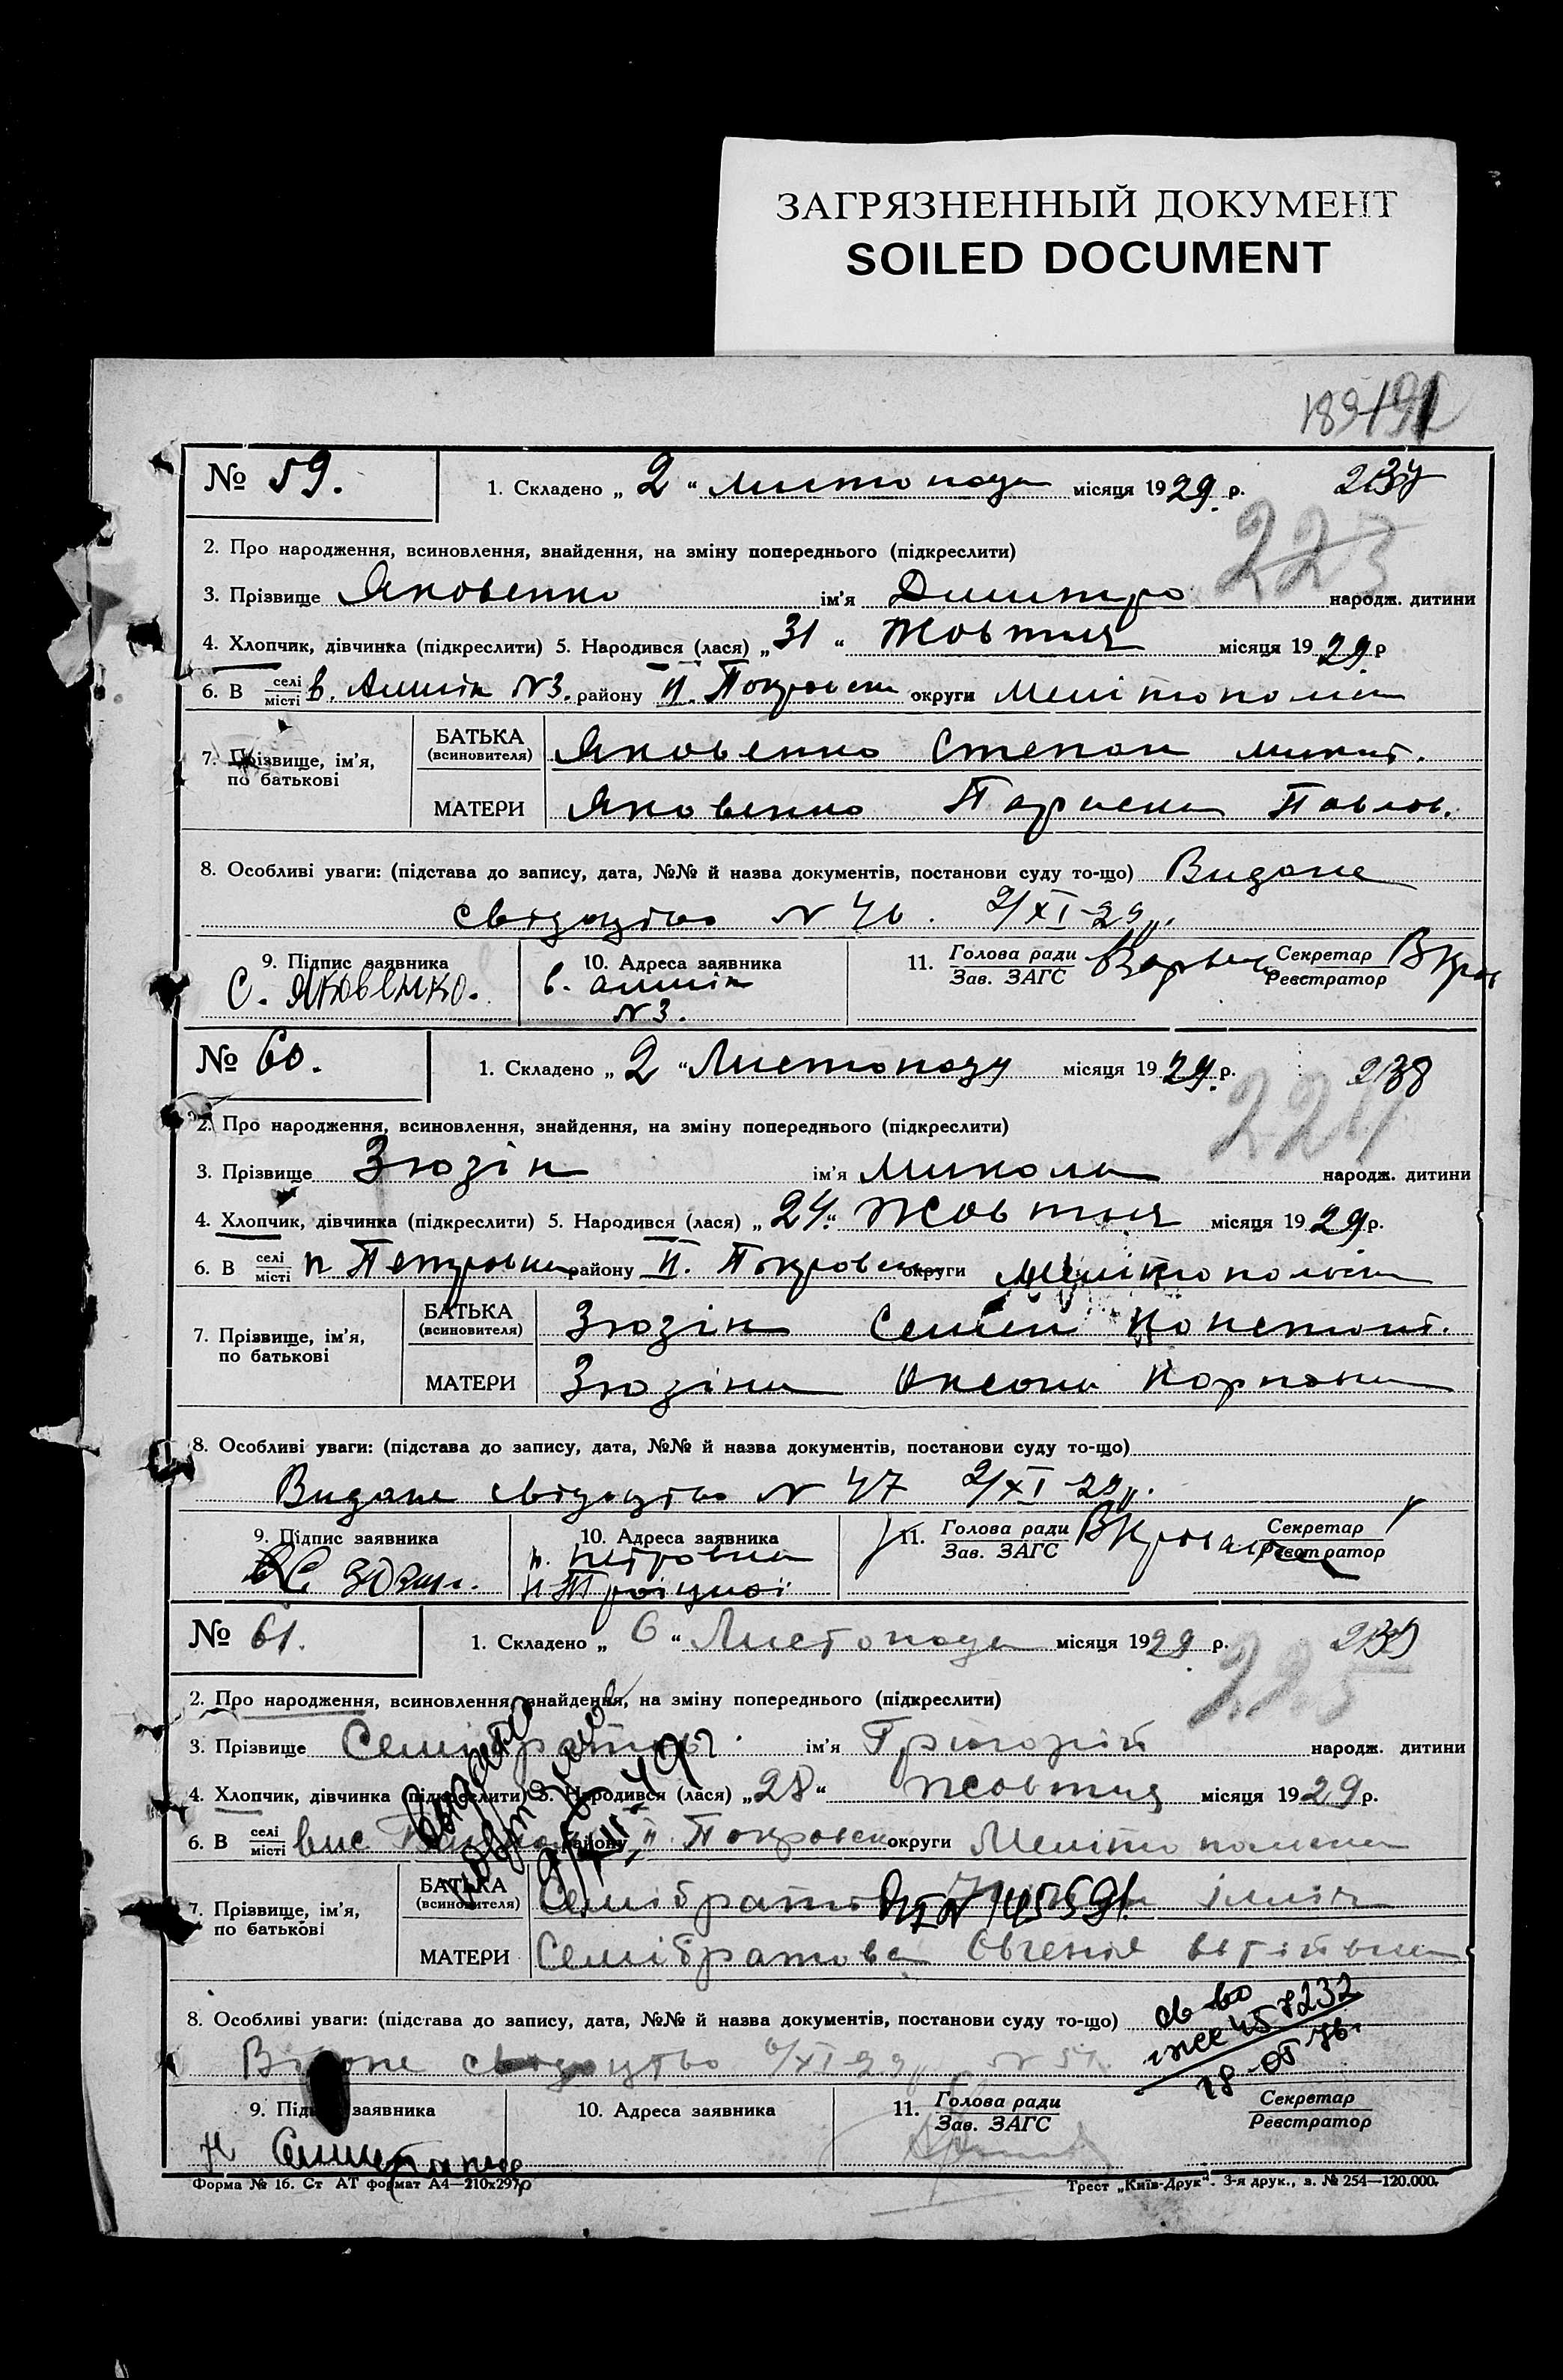 ЗАГРЯЗНЕННЫЙ ДОКУМЕНТ
SOILED DOCUMENT
189
№ 59. 1. Складено „ 2 “ Листопада місяця 1929 р. 237
2. Про народження, всиновлення, знайдення, на зміну попереднього (підкреслити) 223
3. Прізвище Яковенко ім'я Дмитро народж. дитини
4. Хлопчик, дівчинка (підкреслити) 5. Народився (лася) „ 31 “ Жовтня місяця 1929 р
6. В селі/місті в. №3. району П. Покровськ округи Мелітопольск
7. Прізвище, ім'я, по батькові БАТЬКА (всиновителя) Яковенко Степан Микит.
МАТЕРИ Яковенко Параска Павлов.
8. Особливі уваги: (підстава до запису, дата, №№ й назва документів, постанови суду то-що) Видане
свідоцтво N 46. 2/XI-29р.
9. Підпис заявника 10. Адреса заявника 11. Голова ради/Зав. ЗАГС Секретар/Реєстратор
С. Яковенко. в.
N3.
№ 60. 1. Складено „ 2 “ Листопаду місяця 1929. р. 238
2. Про народження, всиновлення, знайдення, на зміну попереднього (підкреслити) 224
3. Прізвище Зюзін ім'я Микола народж. дитини
4. Хлопчик, дівчинка (підкреслити) 5. Народився (лася) „ 24 “ Жовтня місяця 1929 р.
6. В селі/місті п Петровка району П. Покровськ округи Мелітопольск
7. Прізвище, ім'я, по батькові БАТЬКА (всиновителя) Зюзін Семен Констант.
МАТЕРИ Зюзіна Оксана
8. Особливі уваги: (підстава до запису, дата, №№ й назва документів, постанови суду то-що)
Видане свідоцтво N 47 2/XI-29р.
9. Підпис заявника 10. Адреса заявника 11. Голова ради/Зав. ЗАГС Секретар/Реєстратор
п. Петровка
Н Троіцкої
№ 61. 1. Складено „ 6 “ Листопада місяця 1929 р. 239
2. Про народження, всиновлення, знайдення, на зміну попереднього (підкреслити) 225
3. Прізвище ім'я Грігорій народж. дитини
4. Хлопчик, дівчинка (підкреслити) 5. Народився (лася) „ 28 “ Жовтня місяця 1929 р.
6. В селі/місті вис району П Покровськ округи
7. Прізвище, ім'я, по батькові БАТЬКА (всиновителя) Ілліч
МАТЕРИ Семібратова Євгенія
8. Особливі уваги: (підстава до запису, дата, №№ й назва документів, постанови суду то-що) св-во
Видане свідоцтво 6/XI-29р N 51.
9. Підпис заявника 10. Адреса заявника 11. Голова ради/Зав. ЗАГС Секретар/Реєстратор
Форма № 16. Ст АТ формат А4—210х297 Трест „Київ-Друк“. 3-я друк., з. № 254—120.000.